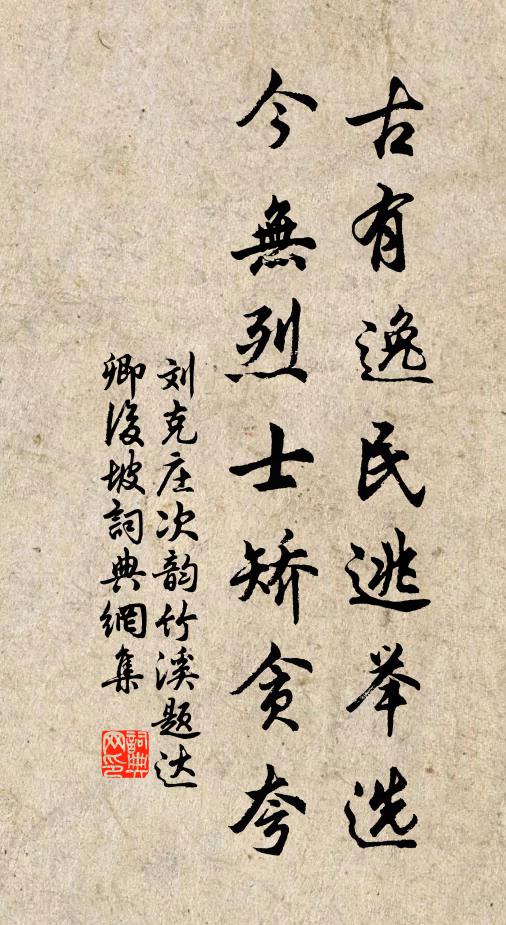 古有逸民逃举选
今無烈士矫贪夸
刘克庄次韵竹溪题达
卿後坡詞典網集
詞典
网印